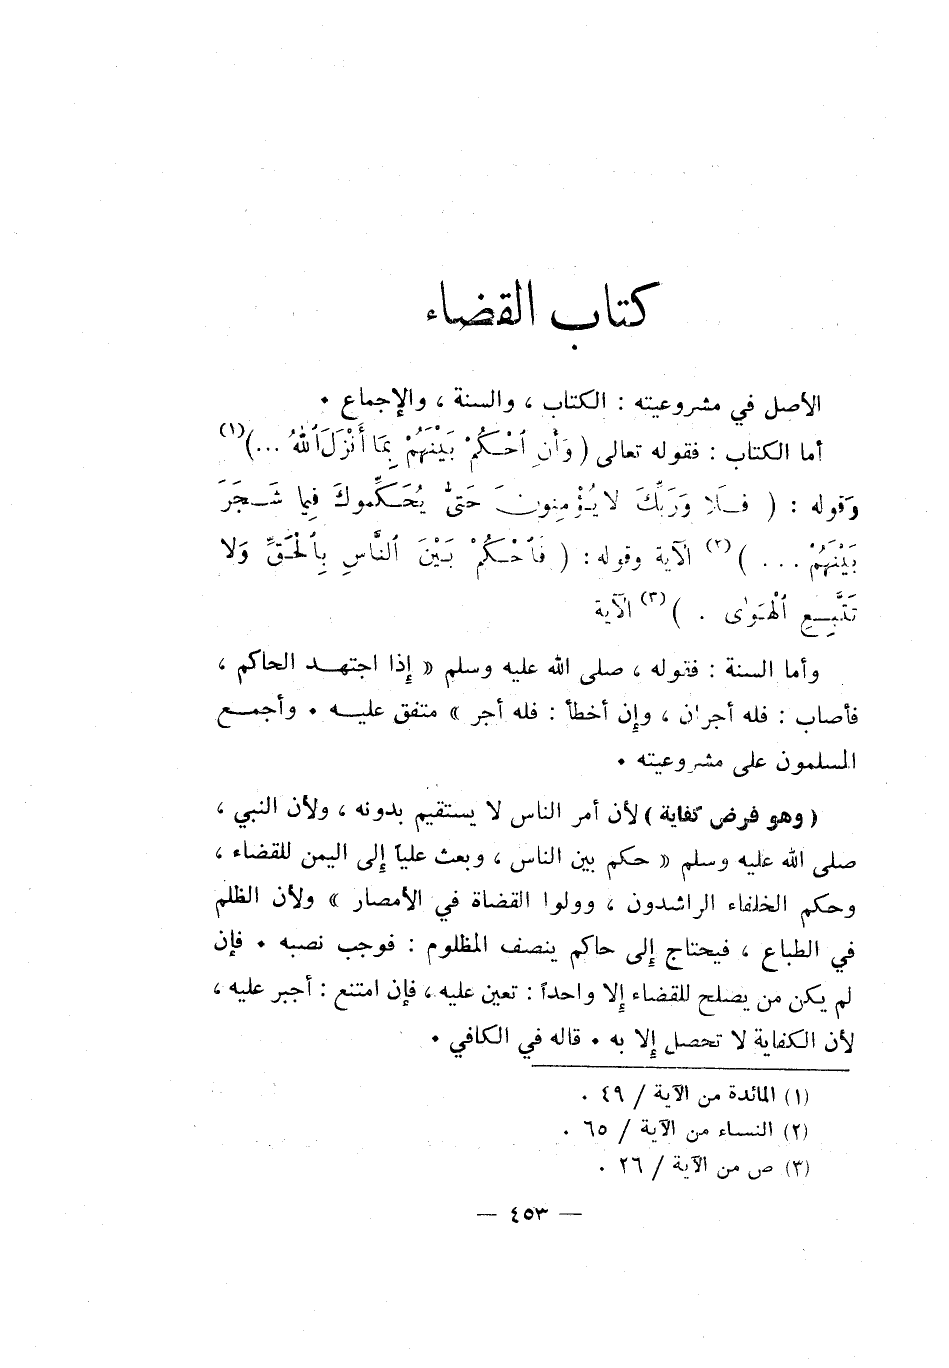 كتاب القضاء
الأصل في مشروعيته : الكتاب ، والسنة ، والإجماع •
أما الكتاب : فقوله تعالى ( وَأَنِ ٱحْكُمْ بَيْنَهُمْ بِمَا أَنْزَلَ ٱللهُ ...)(١)
وقوله : ( فَلَا وَرَبِّكَ لا يُؤْمِنونَ حَتىٰ يُحَكِّموكَ فِيما شَجَرَ
بَيْنَهُمْ ... )(٢) الآية وقوله : ( فَٱحْكُمْ بَيْنَ ٱلنَّاسِ بِٱلْحَقِّ وَلا
تَتَّبِعِ ٱلْهَوٰى . )(٣) الآية
وأما السنة : فقوله ، صلى الله عليه وسلم « إذا اجتهد الحاكم ،
فأصاب : فله أجران ، وإن أخطأ : فله أجر » متفق عليه • وأجمع
المسلمون على مشروعيته •
( وهو فرض كفاية ) لأن أمر الناس لا يستقيم بدونه ، ولأن النبي ،
صلى الله عليه وسلم « حكم بين الناس ، وبعث علياً إلى اليمن للقضاء ،
وحكم الخلفاء الراشدون ، وولوا القضاة في الأمصار » ولأن الظلم
في الطباع ، فيحتاج إلى حاكم ينصف المظلوم : فوجب نصبه • فإن
لم يكن من يصلح للقضاء إلا واحداً : تعين عليه ، فإن امتنع : أجبر عليه ،
لأن الكفاية لا تحصل إلا به • قاله في الكافي •
(١) المائدة من الآية / ٤٩ .
(٢) النساء من الآية / ٦٥ .
(٣) ص من الآية / ٢٦ .
— ٤٥٣ —